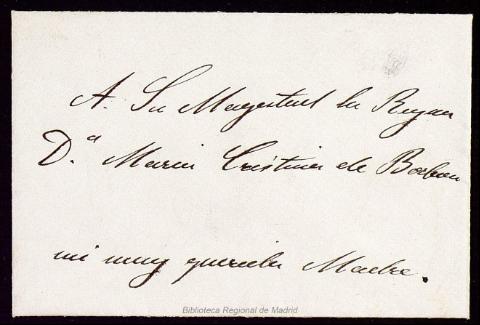 A. Su Magestad la Reyna
D.ª Maria Cristina de Borbon
mi muy querida Madre.
Biblioteca Regional de Madrid